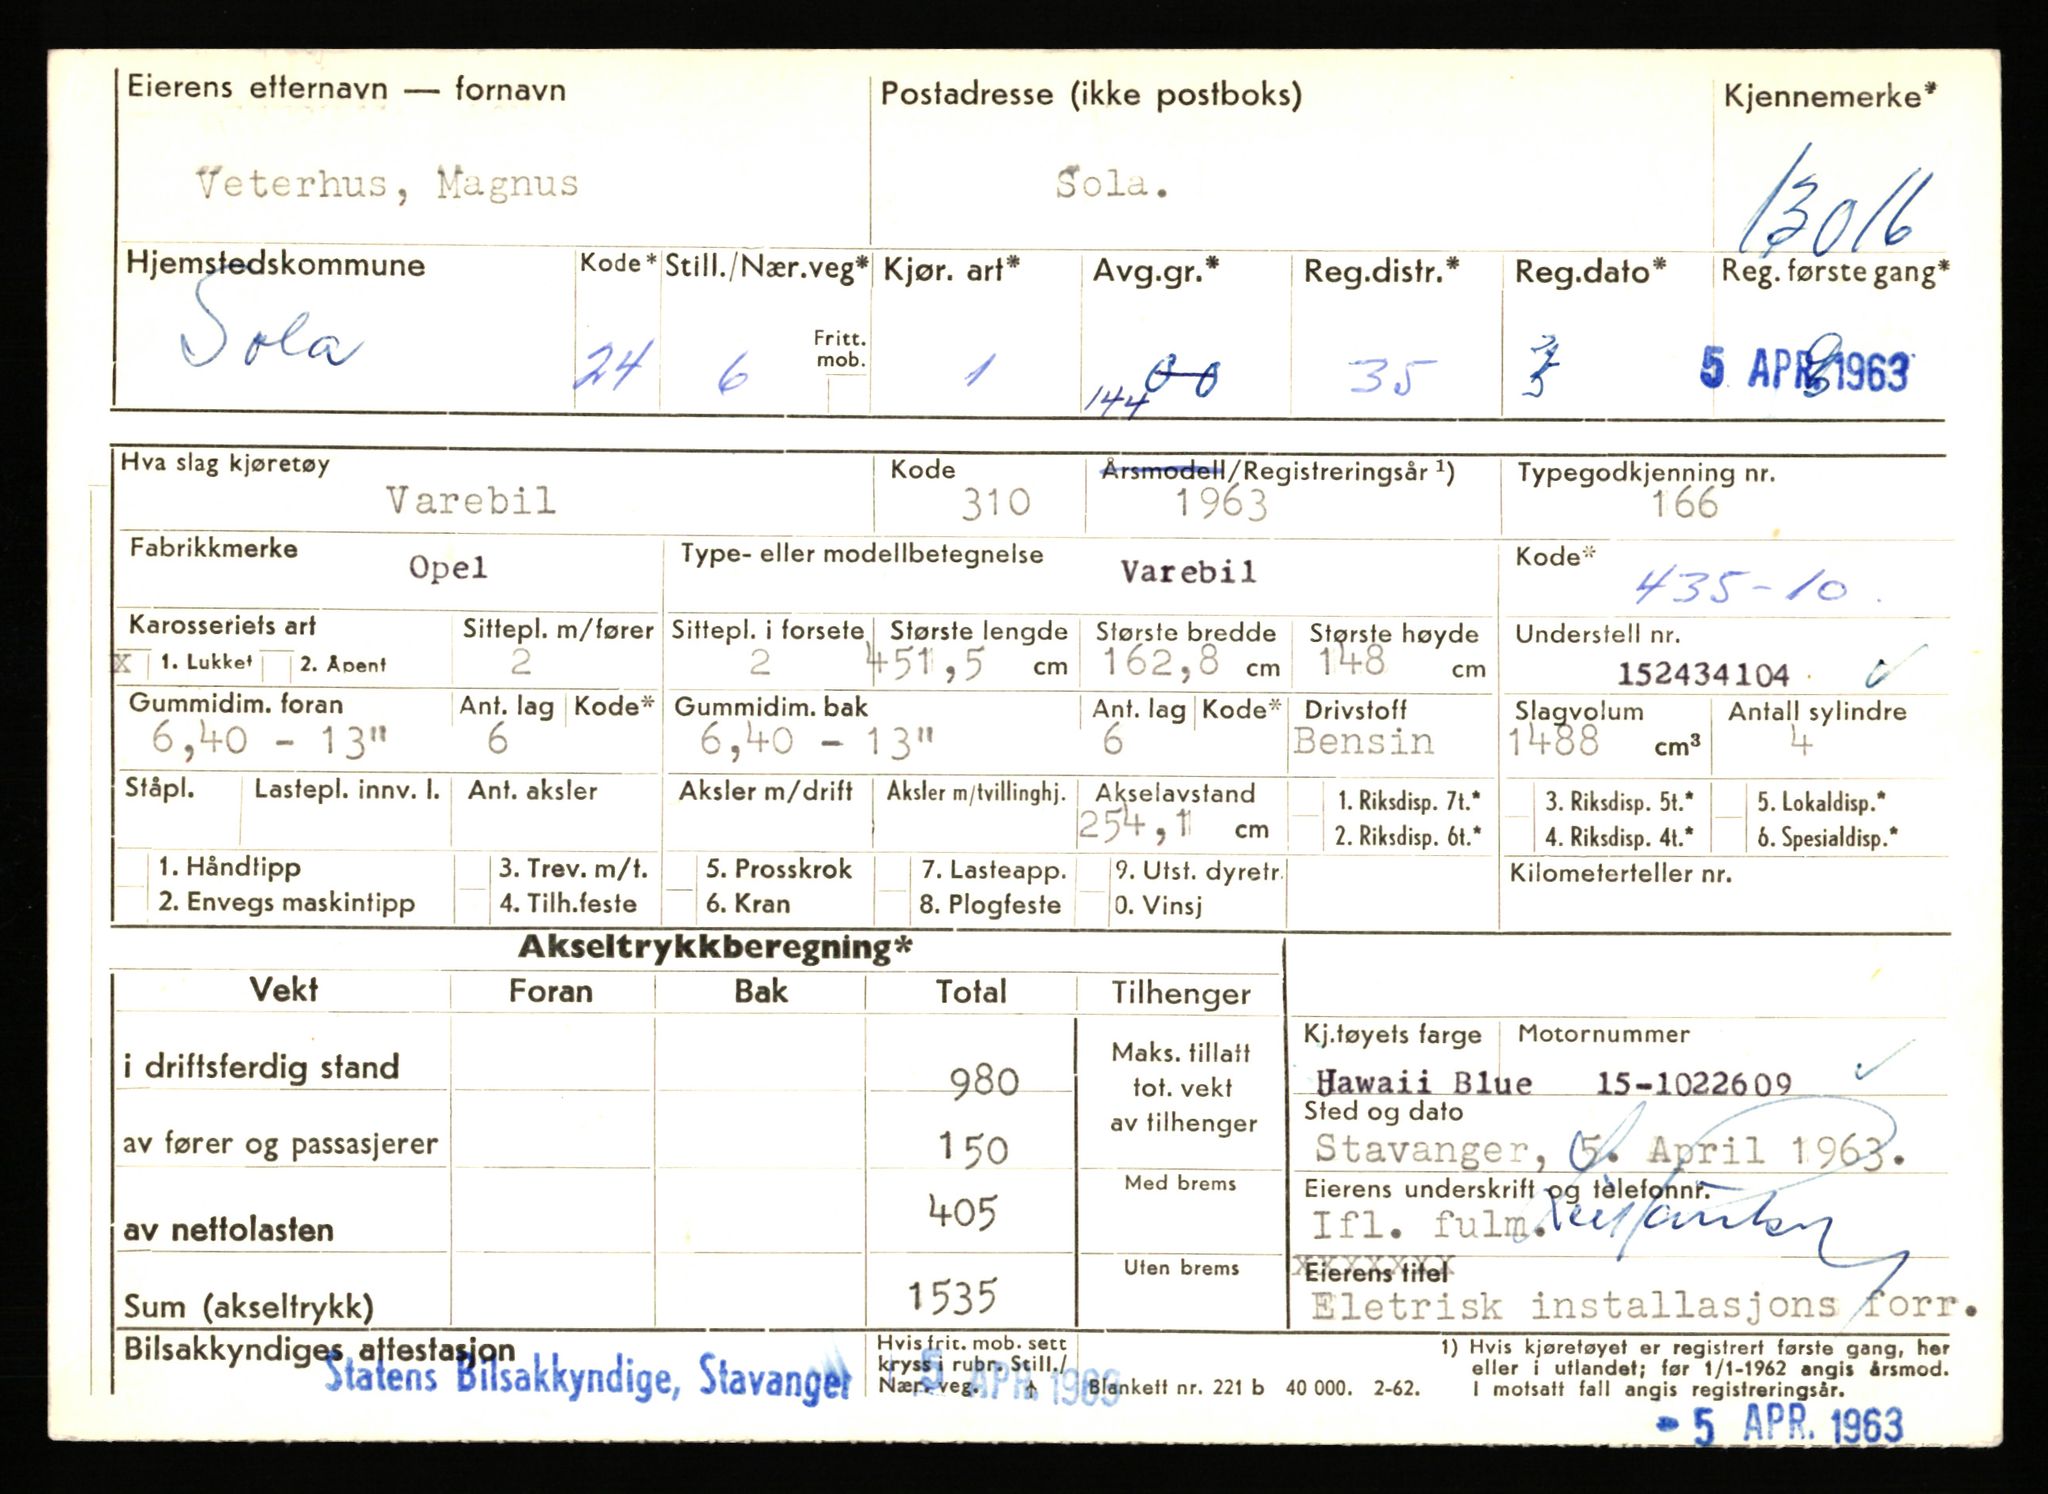 Eierens etternavn — fornavn
Postadresse (ikke postboks)
Kjennemerke*
Veterhus, Magnus
Sola.
13016
Hjemstedskommune
Kode*
Still./Nær.veg*
Kjør. art*
Avg.gr.*
Reg.distr.*
Reg.dato*
Reg. første gang*
Sola
24
6
Fritt. mob.
1
144
35
5 APR. 1963
Hva slag kjøretøy
Kode
Årsmodell/Registreringsår ¹)
Typegodkjenning nr.
Varebil
310
1963
166
Fabrikkmerke
Opel
Type- eller modellbetegnelse
Varebil
Kode*
435-10
Karosseriets art
Sittepl. m/fører
Sittepl. i forsete
Største lengde
Største bredde
Største høyde
Understell nr.
X 1. Lukket 2. Åpent
2
2
451,5 cm
162,8 cm
148 cm
152434104
Gummidim. foran
Ant. lag
Kode*
Gummidim. bak
Ant. lag
Kode*
Drivstoff
Slagvolum
Antall sylindre
6,40 - 13"
6
6,40 - 13"
6
Bensin
1488 cm³
4
Ståpl.
Lastepl. innv. l.
Ant. aksler
Aksler m/drift
Aksler m/tvillinghj.
Akselavstand
254,1 cm
1. Riksdisp. 7t.*
2. Riksdisp. 6t.*
3. Riksdisp. 5t.*
4. Riksdisp. 4t.*
5. Lokaldisp.*
6. Spesialdisp.*
1. Håndtipp
2. Envegs maskintipp
3. Trev. m/t.
4. Tilh.feste
5. Prosskrok
6. Kran
7. Lasteapp.
8. Plogfeste
9. Utst. dyretr.
0. Vinsj
Kilometerteller nr.
Akseltrykkberegning*
Vekt
Foran
Bak
Total
Tilhenger
i driftsferdig stand
980
av fører og passasjerer
150
av nettolasten
405
Sum (akseltrykk)
1535
Maks. tillatt
tot. vekt
av tilhenger
Med brems
Uten brems
Kj.tøyets farge
Motornummer
Hawaii Blue
15-1022609
Sted og dato
Stavanger, 5. April 1963.
Eierens underskrift og telefonnr.
Ifl. fulm.
xxxxxxx
Eierens titel
Eletrisk installasjons forr.
Bilsakkyndiges attestasjon
Statens Bilsakkyndige, Stavanger
5 APR. 1963
Hvis frit. mob. sett
kryss i rubr. Still./
Nær. veg. ↑
Blankett nr. 221 b 40 000. 2-62.
1) Hvis kjøretøyet er registrert første gang, her
eller i utlandet; før 1/1-1962 angis årsmod.
I motsatt fall angis registreringsår.
- 5 APR. 1963